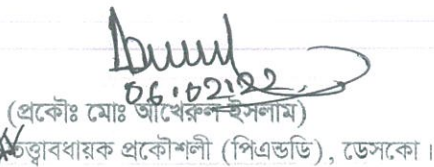 06.02.22
(প্রকৌঃ মোঃ আখেরুল ইসলাম)
তত্ত্বাবধায়ক প্রকৌশলী (পিএন্ডডি), ডেসকো।